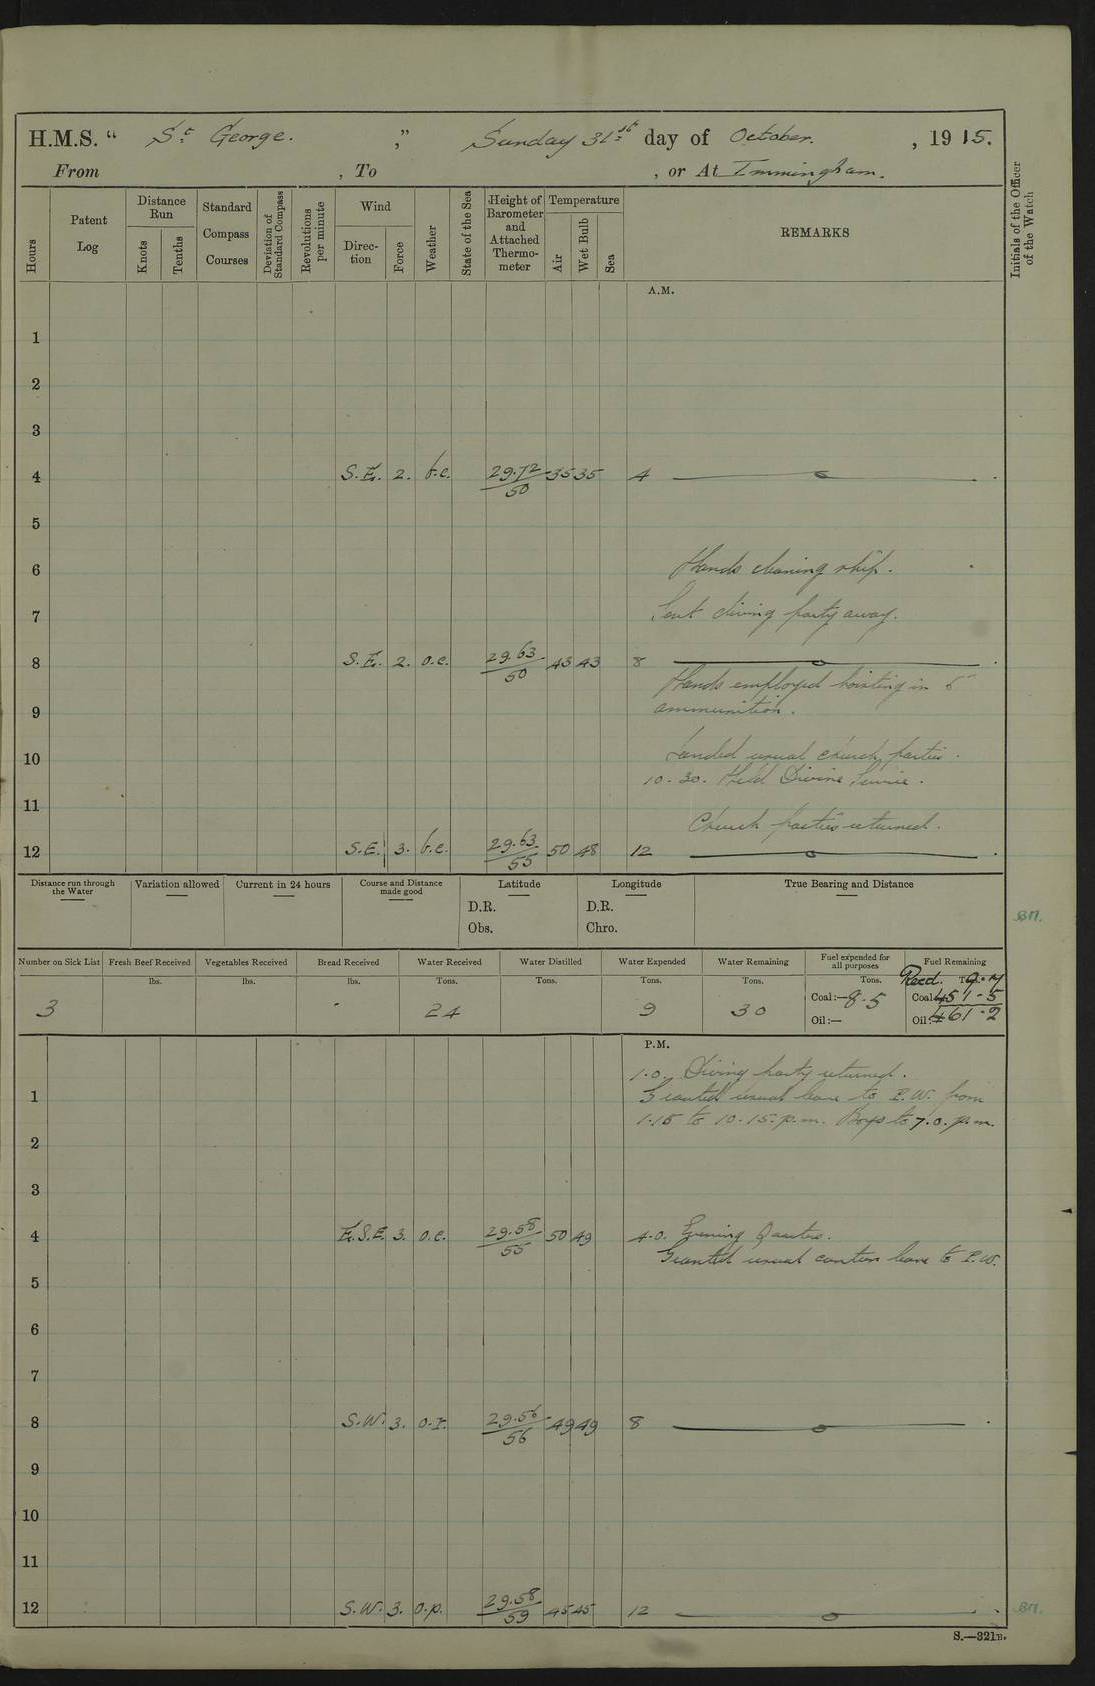 H.M.S. " St George. " Sunday 31st day of October. , 1915.
From , To , or At Immingham.
Hours
Patent Log
Distance Run
Knots
Tenths
Standard Compass Courses
Deviation of Standard Compass
Revolutions per minute
Wind
Direc-tion
Force
Weather
State of the Sea
Height of Barometer and Attached Thermo-meter
Temperature
Air
Wet Bulb
Sea
REMARKS
Initials of the Officer of the Watch
A.M.
1
2
3
4 S.E. 2. b.c. 29.72/50 35 35 4
5
6 Hands cleaning ship.
7 Sent diving party away.
8 S.E. 2. o.c. 29.63/50 43 43 8
Hands employed hoisting in 6"
9 ammunition.
10 Landed usual church parties.
10.30. Held Divine Service.
11
Church parties returned.
12 S.E. 3. b.c. 29.63/55 50 48 12
Distance run through the Water
Variation allowed
Current in 24 hours
Course and Distance made good
Latitude
D.R.
Obs.
Longitude
D.R.
Chro.
True Bearing and Distance
Number on Sick List
Fresh Beef Received
Vegetables Received
Bread Received
Water Received
Water Distilled
Water Expended
Water Remaining
Fuel expended for all purposes
Fuel Remaining
lbs. lbs. lbs. Tons. Tons. Tons. Tons. Tons. Recd. Tons. 9.7
3 24 9 30 Coal:—8.5 Coal 451.5
Oil:— Oil: 461.2
P.M.
1.0. Diving party returned.
1 Granted usual leave to P.W. from
1.15 to 10.15. p.m. Boys to 7.0. p.m.
2
3
4 E.S.E. 3. o.c. 29.58/55 50 49 4.0. Evening Quarters.
Granted usual canteen leave to P.W.
5
6
7
8 S.W. 3. o.r. 29.56/56 49 49 8
9
10
11
12 S.W. 3. o.p. 29.58/59 45 45 12
S.—321B.